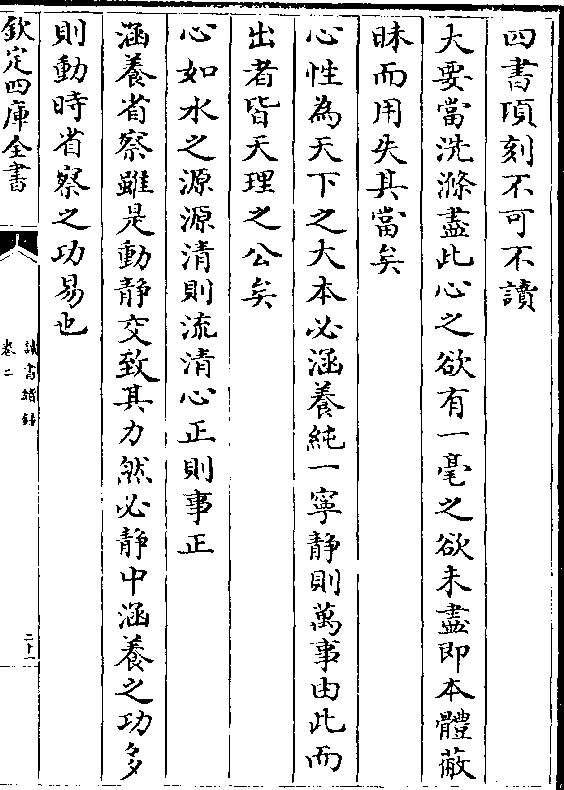 四書頃刻不可不讀
大要當洗滌盡此心之欲有一毫之欲未盡即本體蔽
昧而用失其當矣
心性為天下之大本必涵養純一寧靜則萬事由此而
出者皆天理之公矣
心如水之源源清則流清心正則事正
涵養省察雖是動靜交致其力然必靜中涵養之功多
則動時省察之功易也
欽定四庫全書
讀書續録
卷二
二十一